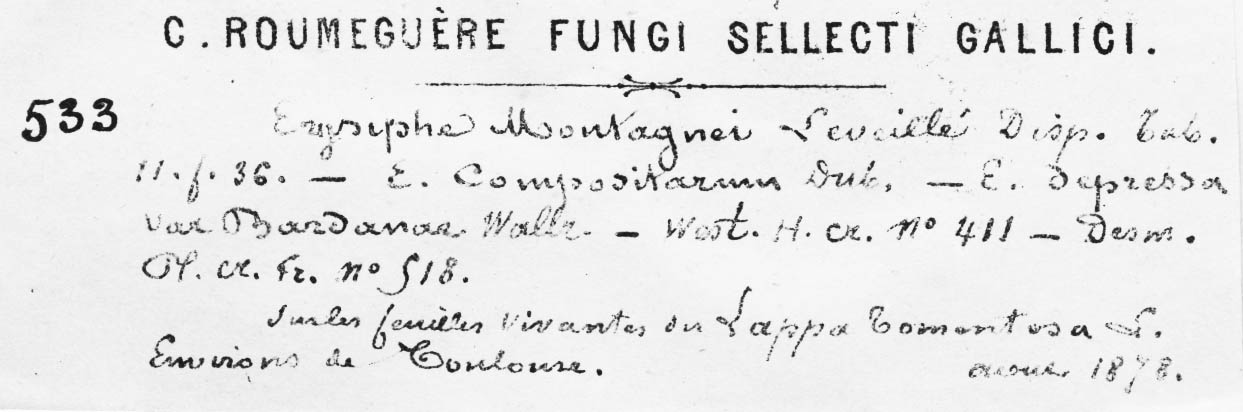 C. ROUMEGUÈRE FUNGI SELLECTI GALLICI.
533 Erysiphe Montagnei Leveillé Disp. Tab.
11. f. 36. — E. Compositarum Dub. — E. depressa
var Bardanae Wallr. — West. H. cr. No 411 — Desm.
Pl. cr. Fr. no 518.
Sur les feuilles vivantes du Lappa tomentosa L.
Environs de Toulouse. aout 1878.